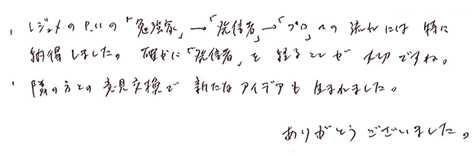 ・レジュメのP.11の「勉強家」→「発信者」→「プロ」への流れには特に
納得しました。確かに「発信者」を経ることが大切ですね。
・隣の方との意見交換で新たなアイデアも生まれました。
ありがとうございました。